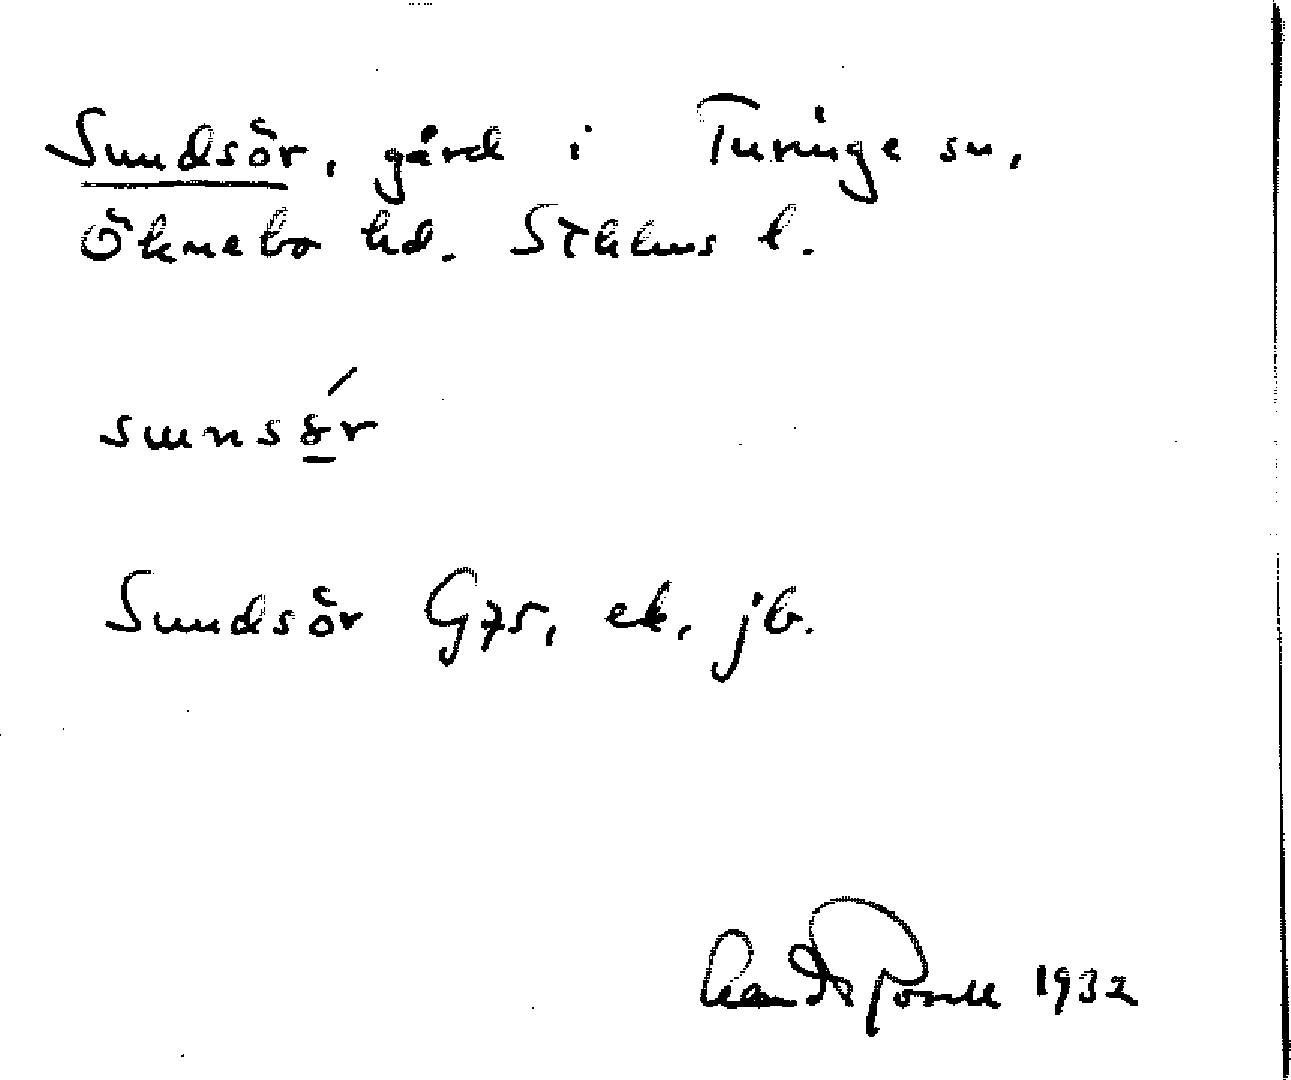 Sundsör, gård i Turinge sn,
Öknebo hd. Sthlms l.
Sundsör G75, ek, jb.
1932